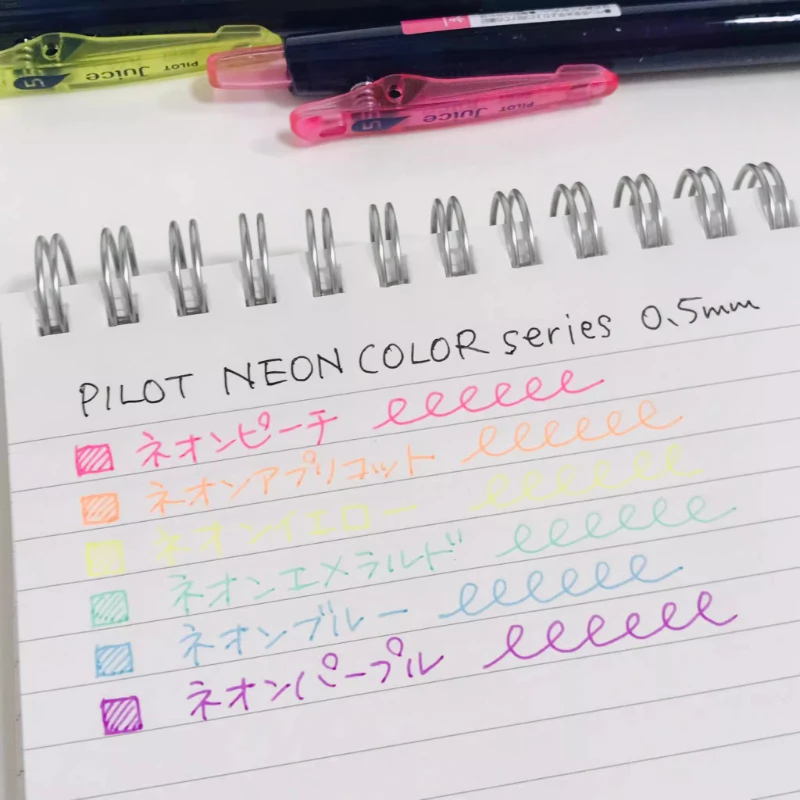 PILOT Juice
PILOT Juice
PILOT NEON COLOR series 0.5mm
ネオンピーチ
ネオンアプリコット
ネオンイエロー
ネオンエメラルド
ネオンブルー
ネオンパープル